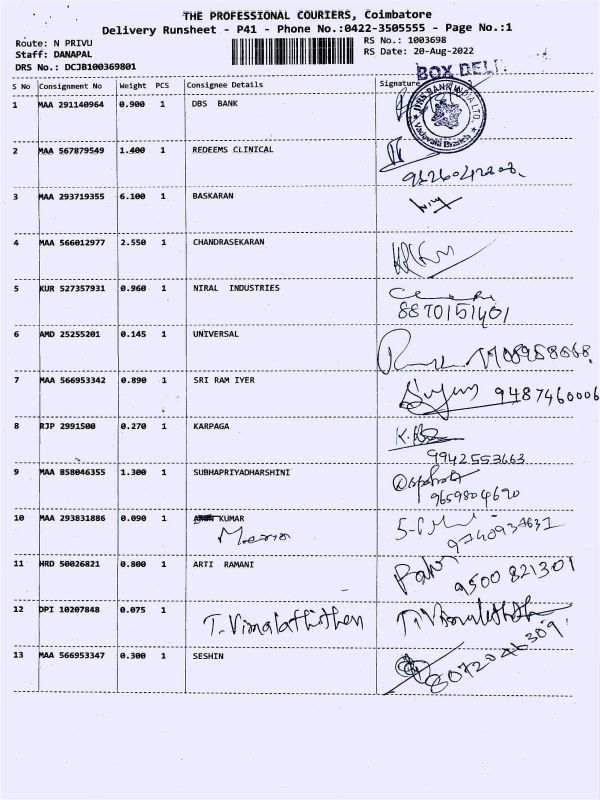 THE PROFESSIONAL COURIERS, Coimbatore
Delivery Runsheet - P41 - Phone No.:0422-3505555 - Page No.:1
Route: N PRIVU
Staff: DANAPAL
DRS No.: DCJB100369801
RS No.: 1003698
RS Date: 20-Aug-2022
BOX DELI.
S No Consignment No Weight PCS Consignee Details Signature
1 MAA 291140964 0.900 1 DBS BANK
DBS BANK INDIA LTD.
2 MAA 567879549 1.400 1 REDEEMS CLINICAL
3 MAA 293719355 6.100 1 BASKARAN
4 MAA 566012977 2.550 1 CHANDRASEKARAN
5 KUR 527357931 0.960 1 NIRAL INDUSTRIES
8870151401
6 AMD 25255201 0.145 1 UNIVERSAL
7 MAA 566953342 0.890 1 SRI RAM IYER
9487460006
8 RJP 2991500 0.270 1 KARPAGA
9942553663
9 MAA 858046355 1.300 1 SUBHAPRIYADHARSHINI
9659804690
10 MAA 293831886 0.090 1 KUMAR
11 HRD 50026821 0.800 1 ARTI RAMANI
9500821301
12 DPI 10207848 0.075 1 T. Vimalathithen
13 MAA 566953347 0.300 1 SESHIN
8072046309